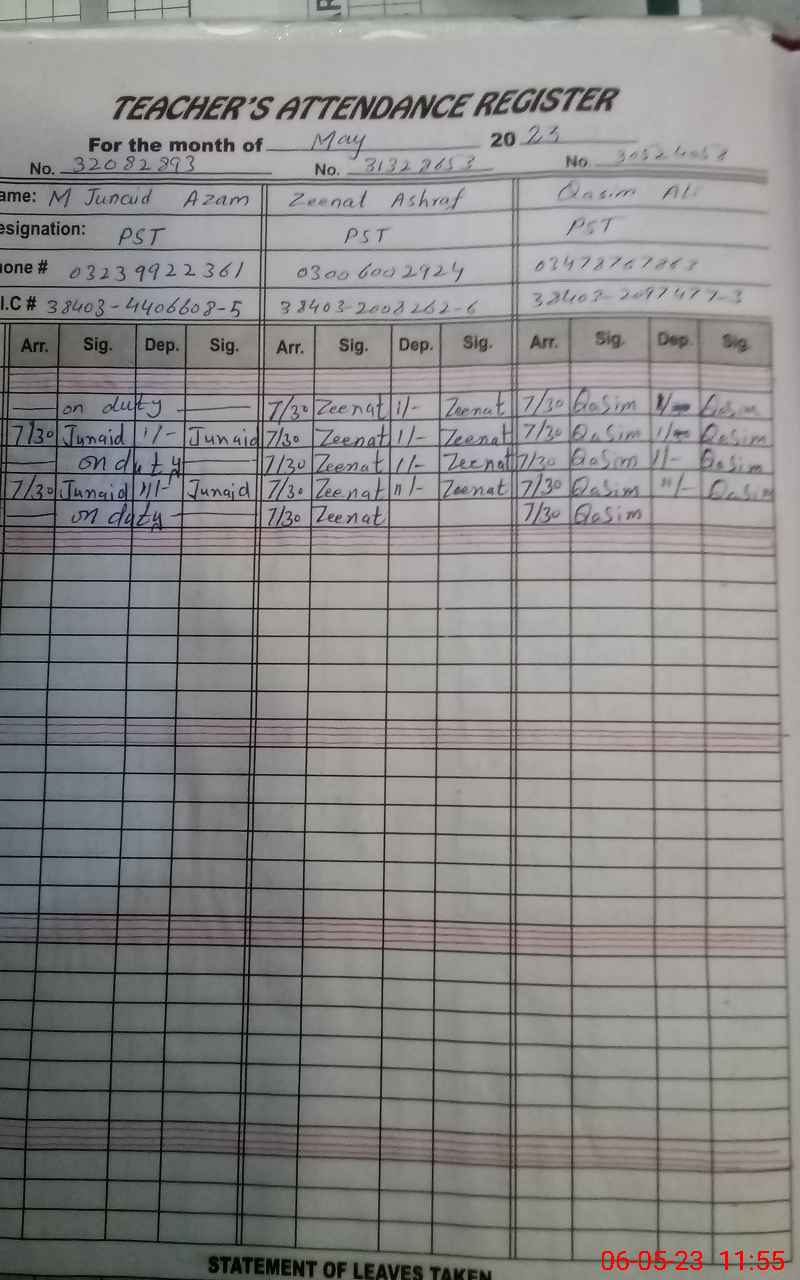 TEACHER'S ATTENDANCE REGISTER
For the month of May 2023
No. 32082893 No. 31328653 No. 30524058
ame: M Junaid Azam Zeenat Ashraf Qasim Ali
esignation: PST PST PST
hone # 03239922361 03006002924 03478767863
.I.C # 38403-4406608-5 38403-2008262-6 38403-2097477-3
Arr. Sig. Dep. Sig. Arr. Sig. Dep. Sig. Arr. Sig. Dep. Sig.
on duty 7/30 Zeenat 1/- Zeenat 7/30 Qasim Qasim
7/30 Junaid 1/- Junaid 7/30 Zeenat 1/- Zeenat 7/30 Qasim Qasim
on duty 7/30 Zeenat 1/- Zeenat 7/30 Qasim 1/- Qasim
7/30 Junaid 11/- Junaid 7/30 Zeenat 11/- Zeenat 7/30 Qasim 11/- Qasim
on duty 7/30 Zeenat 7/30 Qasim
STATEMENT OF LEAVES TAKEN
06-05-23 11:55